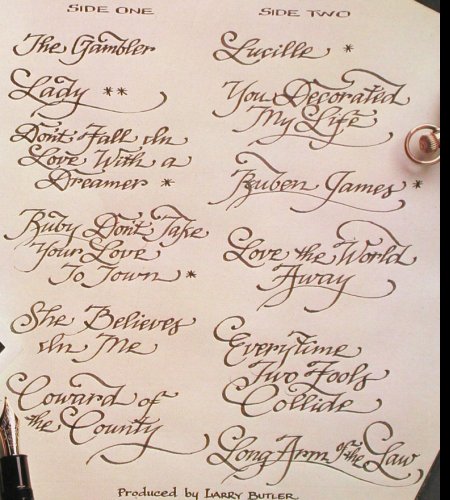 SIDE ONE
The Gambler
Lady **
Don't Fall In
Love With a
Dreamer *
Ruby Don't Take
Your Love
To Town *
She Believes
In Me
Coward of
the County
SIDE TWO
Lucille *
You Decorated
My Life
Ruben James *
Love the World
Away
Everytime
Two Fools
Collide
Long Arm of the Law
Produced by LARRY BUTLER